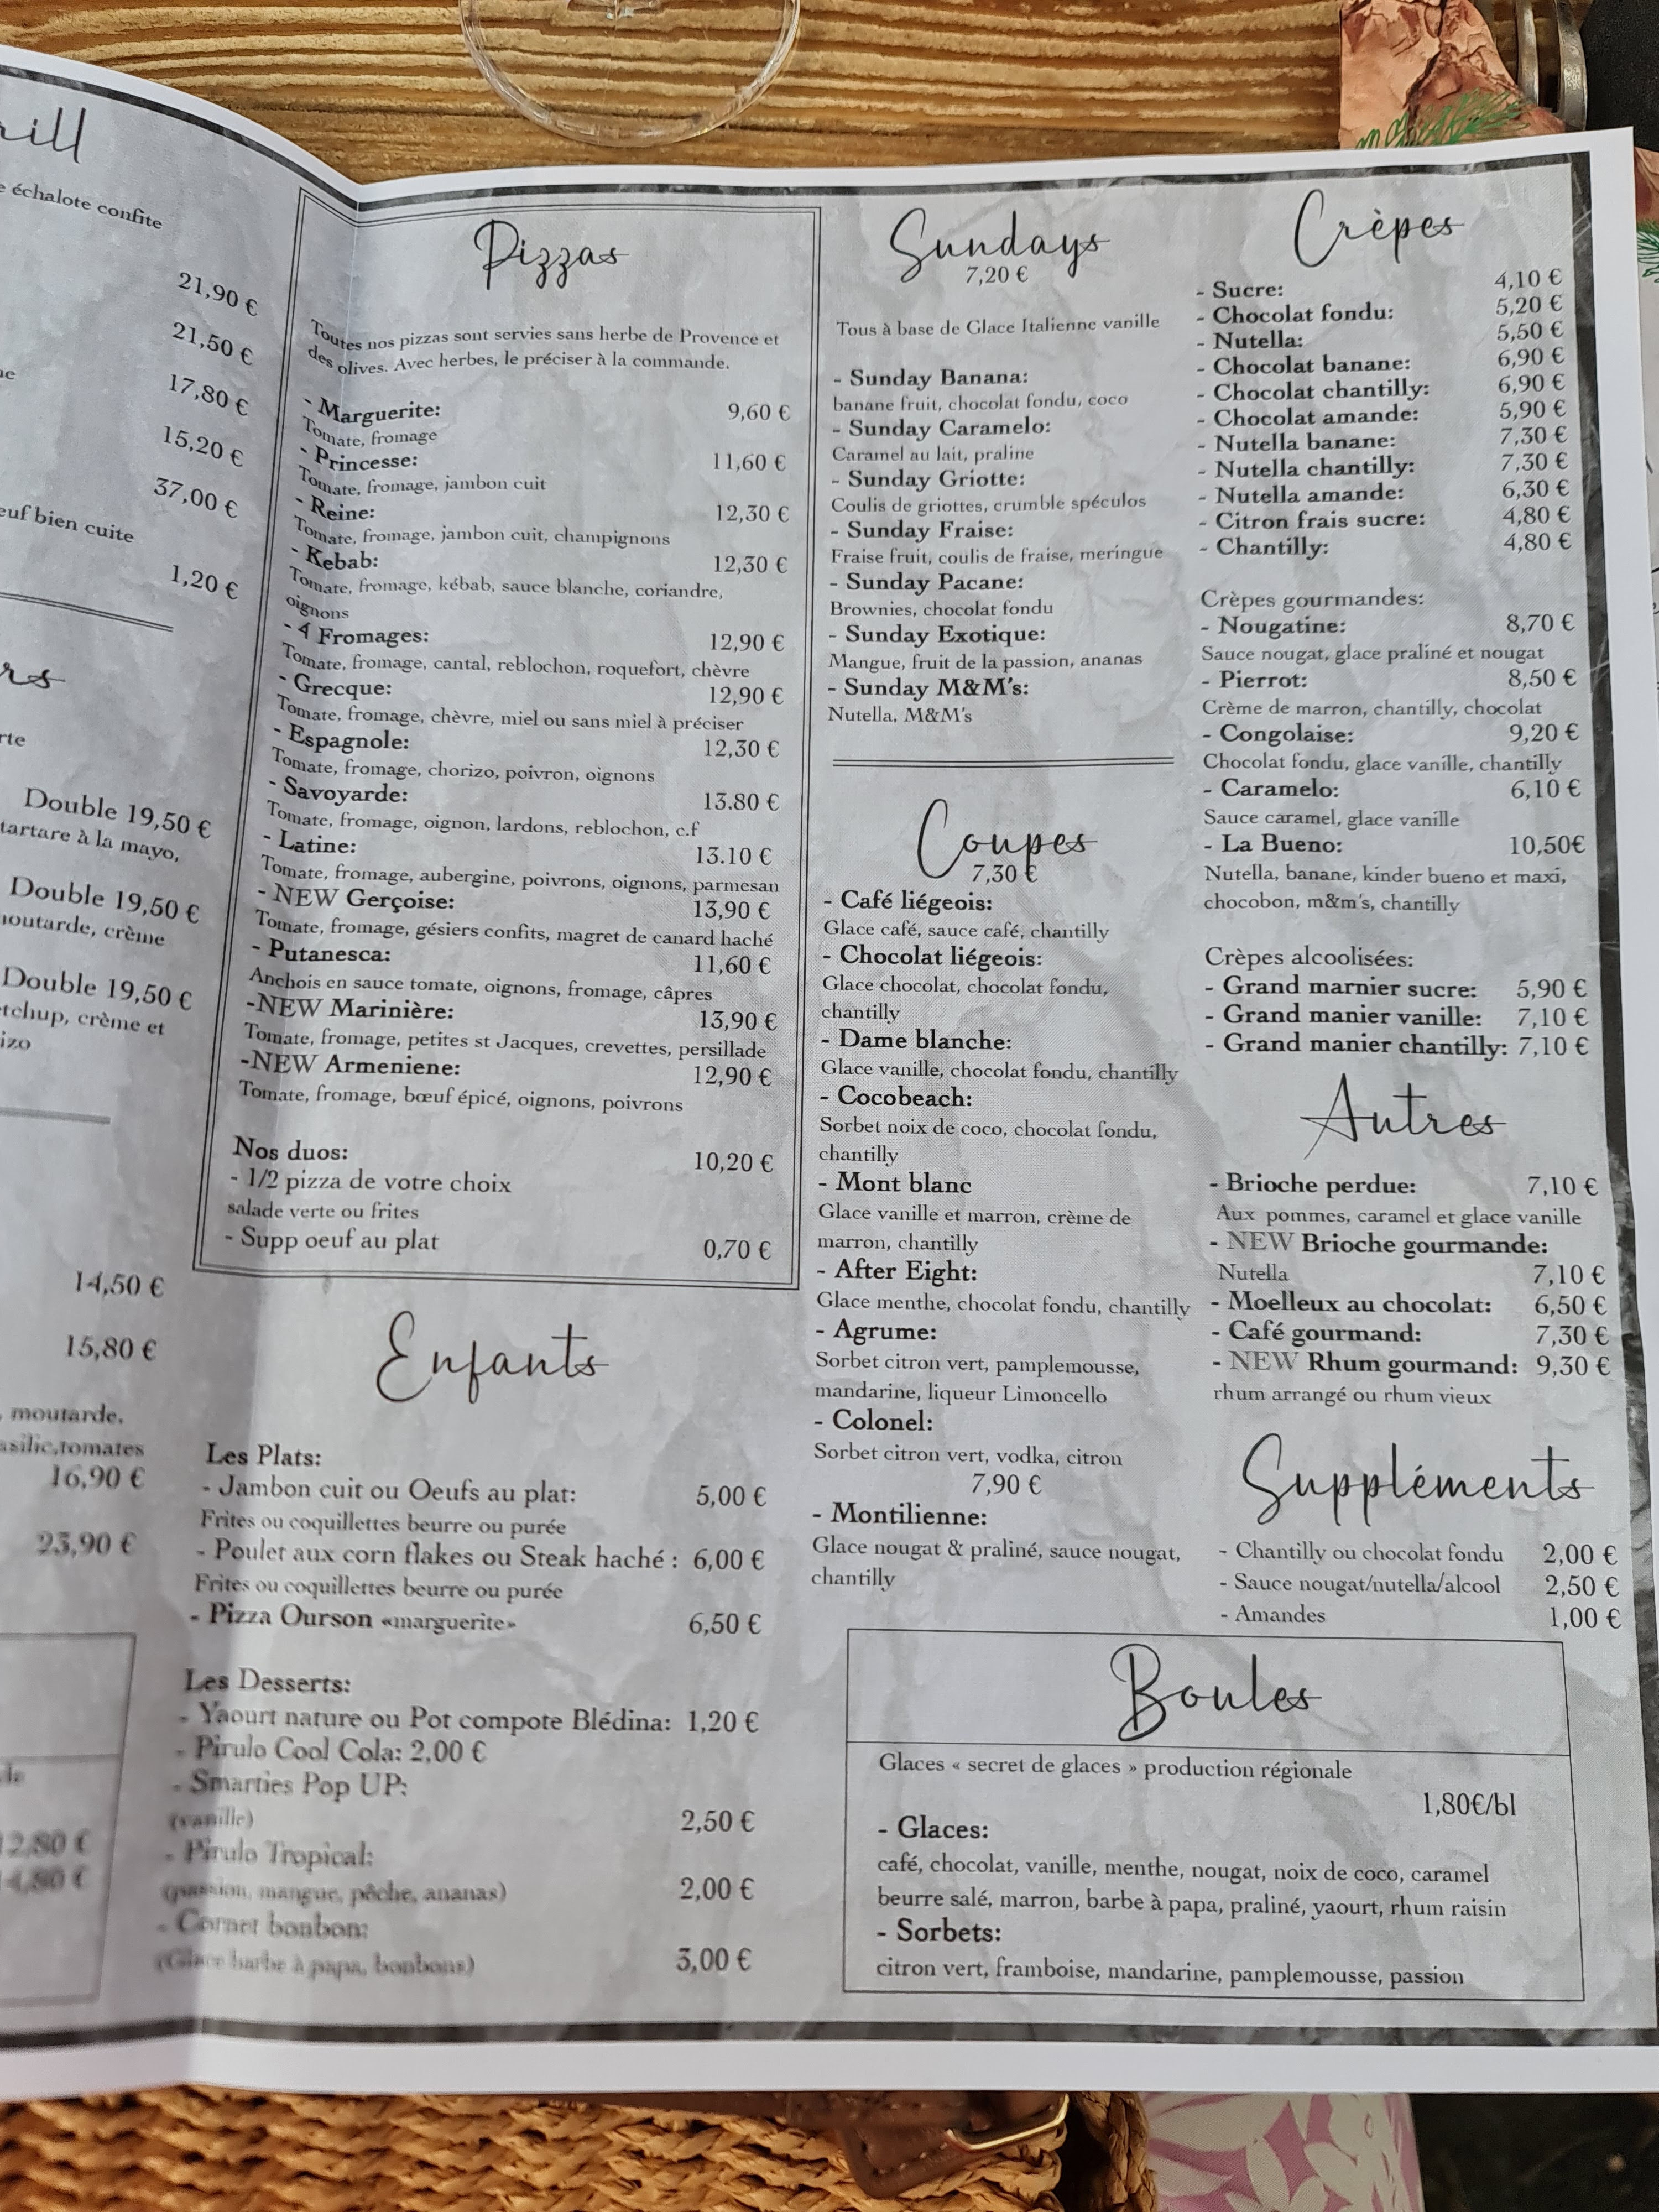 rill
échalote confite
21,90 €
21,50 €
17,80 €
15,20 €
37,00 €
bien cuite
1,20 €
rs
Double 19,50 €
tartare à la mayo,
Double 19,50 €
moutarde, crème
Double 19,50 €
crème et
14,50 €
15,80 €
moutarde,
tomates
16,90 €
23,90 €
Pizzas
Toutes nos pizzas sont servies sans herbe de Provence et
des olives. Avec herbes, le préciser à la commande.
- Marguerite: 9,60 €
Tomate, fromage
- Princesse: 11,60 €
Tomate, fromage, jambon cuit
- Reine: 12,30 €
Tomate, fromage, jambon cuit, champignons
- Kebab: 12,30 €
Tomate, fromage, kébab, sauce blanche, coriandre,
oignons
- 4 Fromages: 12,90 €
Tomate, fromage, cantal, reblochon, roquefort, chèvre
- Grecque: 12,90 €
Tomate, fromage, chèvre, miel ou sans miel à préciser
- Espagnole: 12,30 €
Tomate, fromage, chorizo, poivron, oignons
- Savoyarde: 13.80 €
Tomate, fromage, oignon, lardons, reblochon, c.f
- Latine: 13.10 €
Tomate, fromage, aubergine, poivrons, oignons, parmesan
- NEW Gerçoise: 13,90 €
Tomate, fromage, gésiers confits, magret de canard haché
- Putanesca: 11,60 €
Anchois en sauce tomate, oignons, fromage, câpres
-NEW Marinière: 13,90 €
Tomate, fromage, petites st Jacques, crevettes, persillade
-NEW Armeniene: 12,90 €
Tomate, fromage, bœuf épicé, oignons, poivrons
Nos duos: 10,20 €
- 1/2 pizza de votre choix
salade verte ou frites
- Supp oeuf au plat 0,70 €
Enfants
Les Plats:
- Jambon cuit ou Oeufs au plat: 5,00 €
Frites ou coquillettes beurre ou purée
- Poulet aux corn flakes ou Steak haché : 6,00 €
Frites ou coquillettes beurre ou purée
- Pizza Ourson «marguerite» 6,50 €
Les Desserts:
- Yaourt nature ou Pot compote Blédina: 1,20 €
- Pirulo Cool Cola: 2,00 €
- Smarties Pop UP:
(vanille) 2,50 €
- Pirulo Tropical:
(passion, mangue, pêche, ananas) 2,00 €
- Cornet bonbon:
(Glace barbe à papa, bonbons) 3,00 €
Sundays
7,20 €
Tous à base de Glace Italienne vanille
- Sunday Banana:
banane fruit, chocolat fondu, coco
- Sunday Caramelo:
Caramel au lait, praline
- Sunday Griotte:
Coulis de griottes, crumble spéculos
- Sunday Fraise:
Fraise fruit, coulis de fraise, meringue
- Sunday Pacane:
Brownies, chocolat fondu
- Sunday Exotique:
Mangue, fruit de la passion, ananas
- Sunday M&M's:
Nutella, M&M's
Coupes
7,30 €
- Café liégeois:
Glace café, sauce café, chantilly
- Chocolat liégeois:
Glace chocolat, chocolat fondu,
chantilly
- Dame blanche:
Glace vanille, chocolat fondu, chantilly
- Cocobeach:
Sorbet noix de coco, chocolat fondu,
chantilly
- Mont blanc
Glace vanille et marron, crème de
marron, chantilly
- After Eight:
Glace menthe, chocolat fondu, chantilly
- Agrume:
Sorbet citron vert, pamplemousse,
mandarine, liqueur Limoncello
- Colonel:
Sorbet citron vert, vodka, citron
7,90 €
- Montilienne:
Glace nougat & praliné, sauce nougat,
chantilly
Crèpes
- Sucre: 4,10 €
- Chocolat fondu: 5,20 €
- Nutella: 5,50 €
- Chocolat banane: 6,90 €
- Chocolat chantilly: 6,90 €
- Chocolat amande: 5,90 €
- Nutella banane: 7,30 €
- Nutella chantilly: 7,30 €
- Nutella amande: 6,30 €
- Citron frais sucre: 4,80 €
- Chantilly: 4,80 €
Crèpes gourmandes:
- Nougatine: 8,70 €
Sauce nougat, glace praliné et nougat
- Pierrot: 8,50 €
Crème de marron, chantilly, chocolat
- Congolaise: 9,20 €
Chocolat fondu, glace vanille, chantilly
- Caramelo: 6,10 €
Sauce caramel, glace vanille
- La Bueno: 10,50€
Nutella, banane, kinder bueno et maxi,
chocobon, m&m's, chantilly
Crèpes alcoolisées:
- Grand marnier sucre: 5,90 €
- Grand manier vanille: 7,10 €
- Grand manier chantilly: 7,10 €
Autres
- Brioche perdue: 7,10 €
Aux pommes, caramel et glace vanille
- NEW Brioche gourmande:
Nutella 7,10 €
- Moelleux au chocolat: 6,50 €
- Café gourmand: 7,30 €
- NEW Rhum gourmand: 9,30 €
rhum arrangé ou rhum vieux
Suppléments
- Chantilly ou chocolat fondu 2,00 €
- Sauce nougat/nutella/alcool 2,50 €
- Amandes 1,00 €
Boules
Glaces « secret de glaces » production régionale
1,80€/bl
- Glaces:
café, chocolat, vanille, menthe, nougat, noix de coco, caramel
beurre salé, marron, barbe à papa, praliné, yaourt, rhum raisin
- Sorbets:
citron vert, framboise, mandarine, pamplemousse, passion